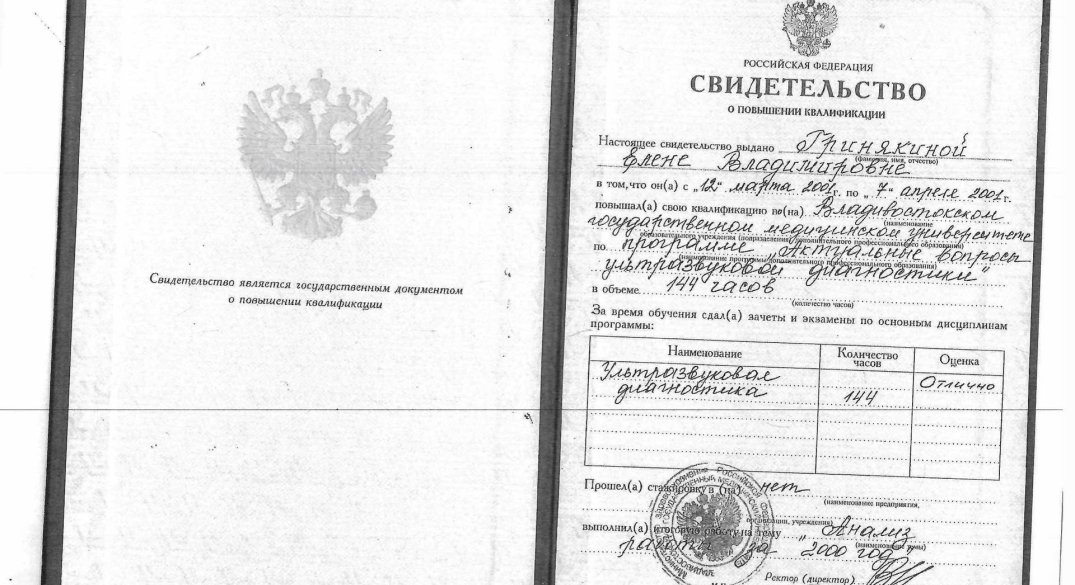 Свидетельство является государственным документом
о повышении квалификации
РОССИЙСКАЯ ФЕДЕРАЦИЯ
СВИДЕТЕЛЬСТВО
О ПОВЫШЕНИИ КВАЛИФИКАЦИИ
Настоящее свидетельство выдано Гринякиной
(фамилия, имя, отчество)
Елене Владимировне
в том, что он(а) с „12“ марта 2001г. по „7“ апреля 2001г.
повышал(а) свою квалификацию в(на) Владивостокском
(наименование
государственном медицинском университете
образовательного учреждения (подразделения) дополнительного профессионального образования)
по программе „Актуальные вопросы
(наименование программы дополнительного профессионального образования)
ультразвуковой диагностики"
в объеме 144 часов
(количество часов)
За время обучения сдал(а) зачеты и экзамены по основным дисциплинам
программы:
Наименование Количество часов Оценка
Ультразвуковая Отлично
диагностика 144
Прошел(а) стажировку в (на) нет
(наименование предприятия,
организации, учреждения)
выполнил(а) итоговую работу на тему „Анализ
(наименование темы)
работы за 2000 год"
Ректор (директор)